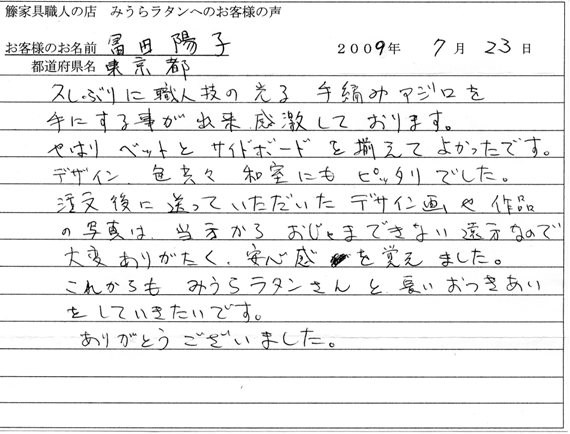 籐家具職人の店 みうらラタンへのお客様の声
お客様のお名前 冨田 陽子 2009年 7月 23日
都道府県名 東京都
久しぶりに職人技の光る 手編みアジロを
手にする事が出来、感激しております。
やはり ベットと サイドボードを揃えてよかったです。
デザイン、色共々 和室にも ピッタリでした。
注文後に送っていただいた デザイン画や作品
の写真は、当方から おじゃまできない遠方なので
大変ありがたく、安心感を覚えました。
これからも みうらラタンさんと 長いおつきあい
をしていきたいです。
ありがとうございました。